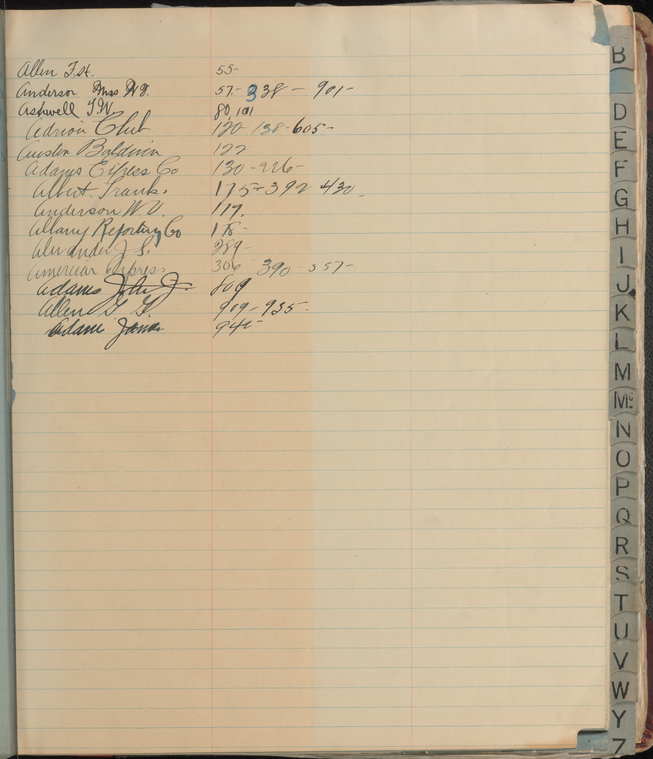 Allen F. H. 55-
Anderson Miss W. G. 57- 338 - 901-
Ashwell T. W. 80, 101
Club 120 - 138 - 605-
Austen Baldwin 122
Adams Express Co 130 - 226-
Albert Frank. 175 - 392 - 430
Anderson W. 179.
Albany Reporting Co 18-
Alexander J. S. 289-
American Express 306 390 - 557-
Adams John J. 809
Allen G. 909 - 935-
Adams 940-
B
D
E
F
G
H
I
J
K
L
M
Mc
N
O
P
Q
R
S
T
U
V
W
Y
Z